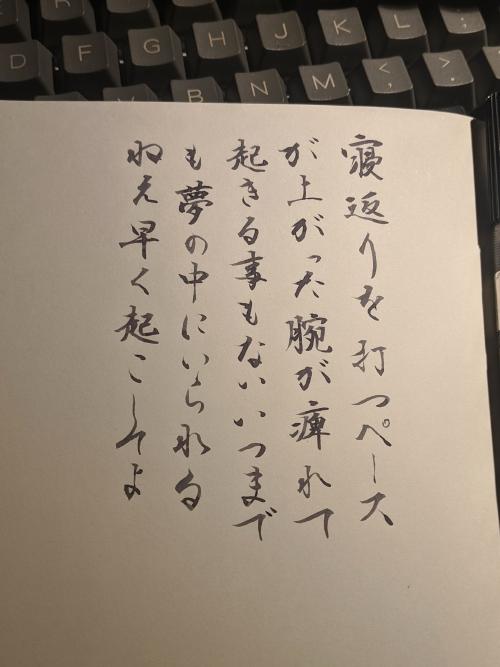 D F G H J K L : ;
V B N M < , > .
寝返りを打つペース
が上がった腕が痺れて
起きる事もないいつまで
も夢の中にいられる
ねえ早く起こしてよ